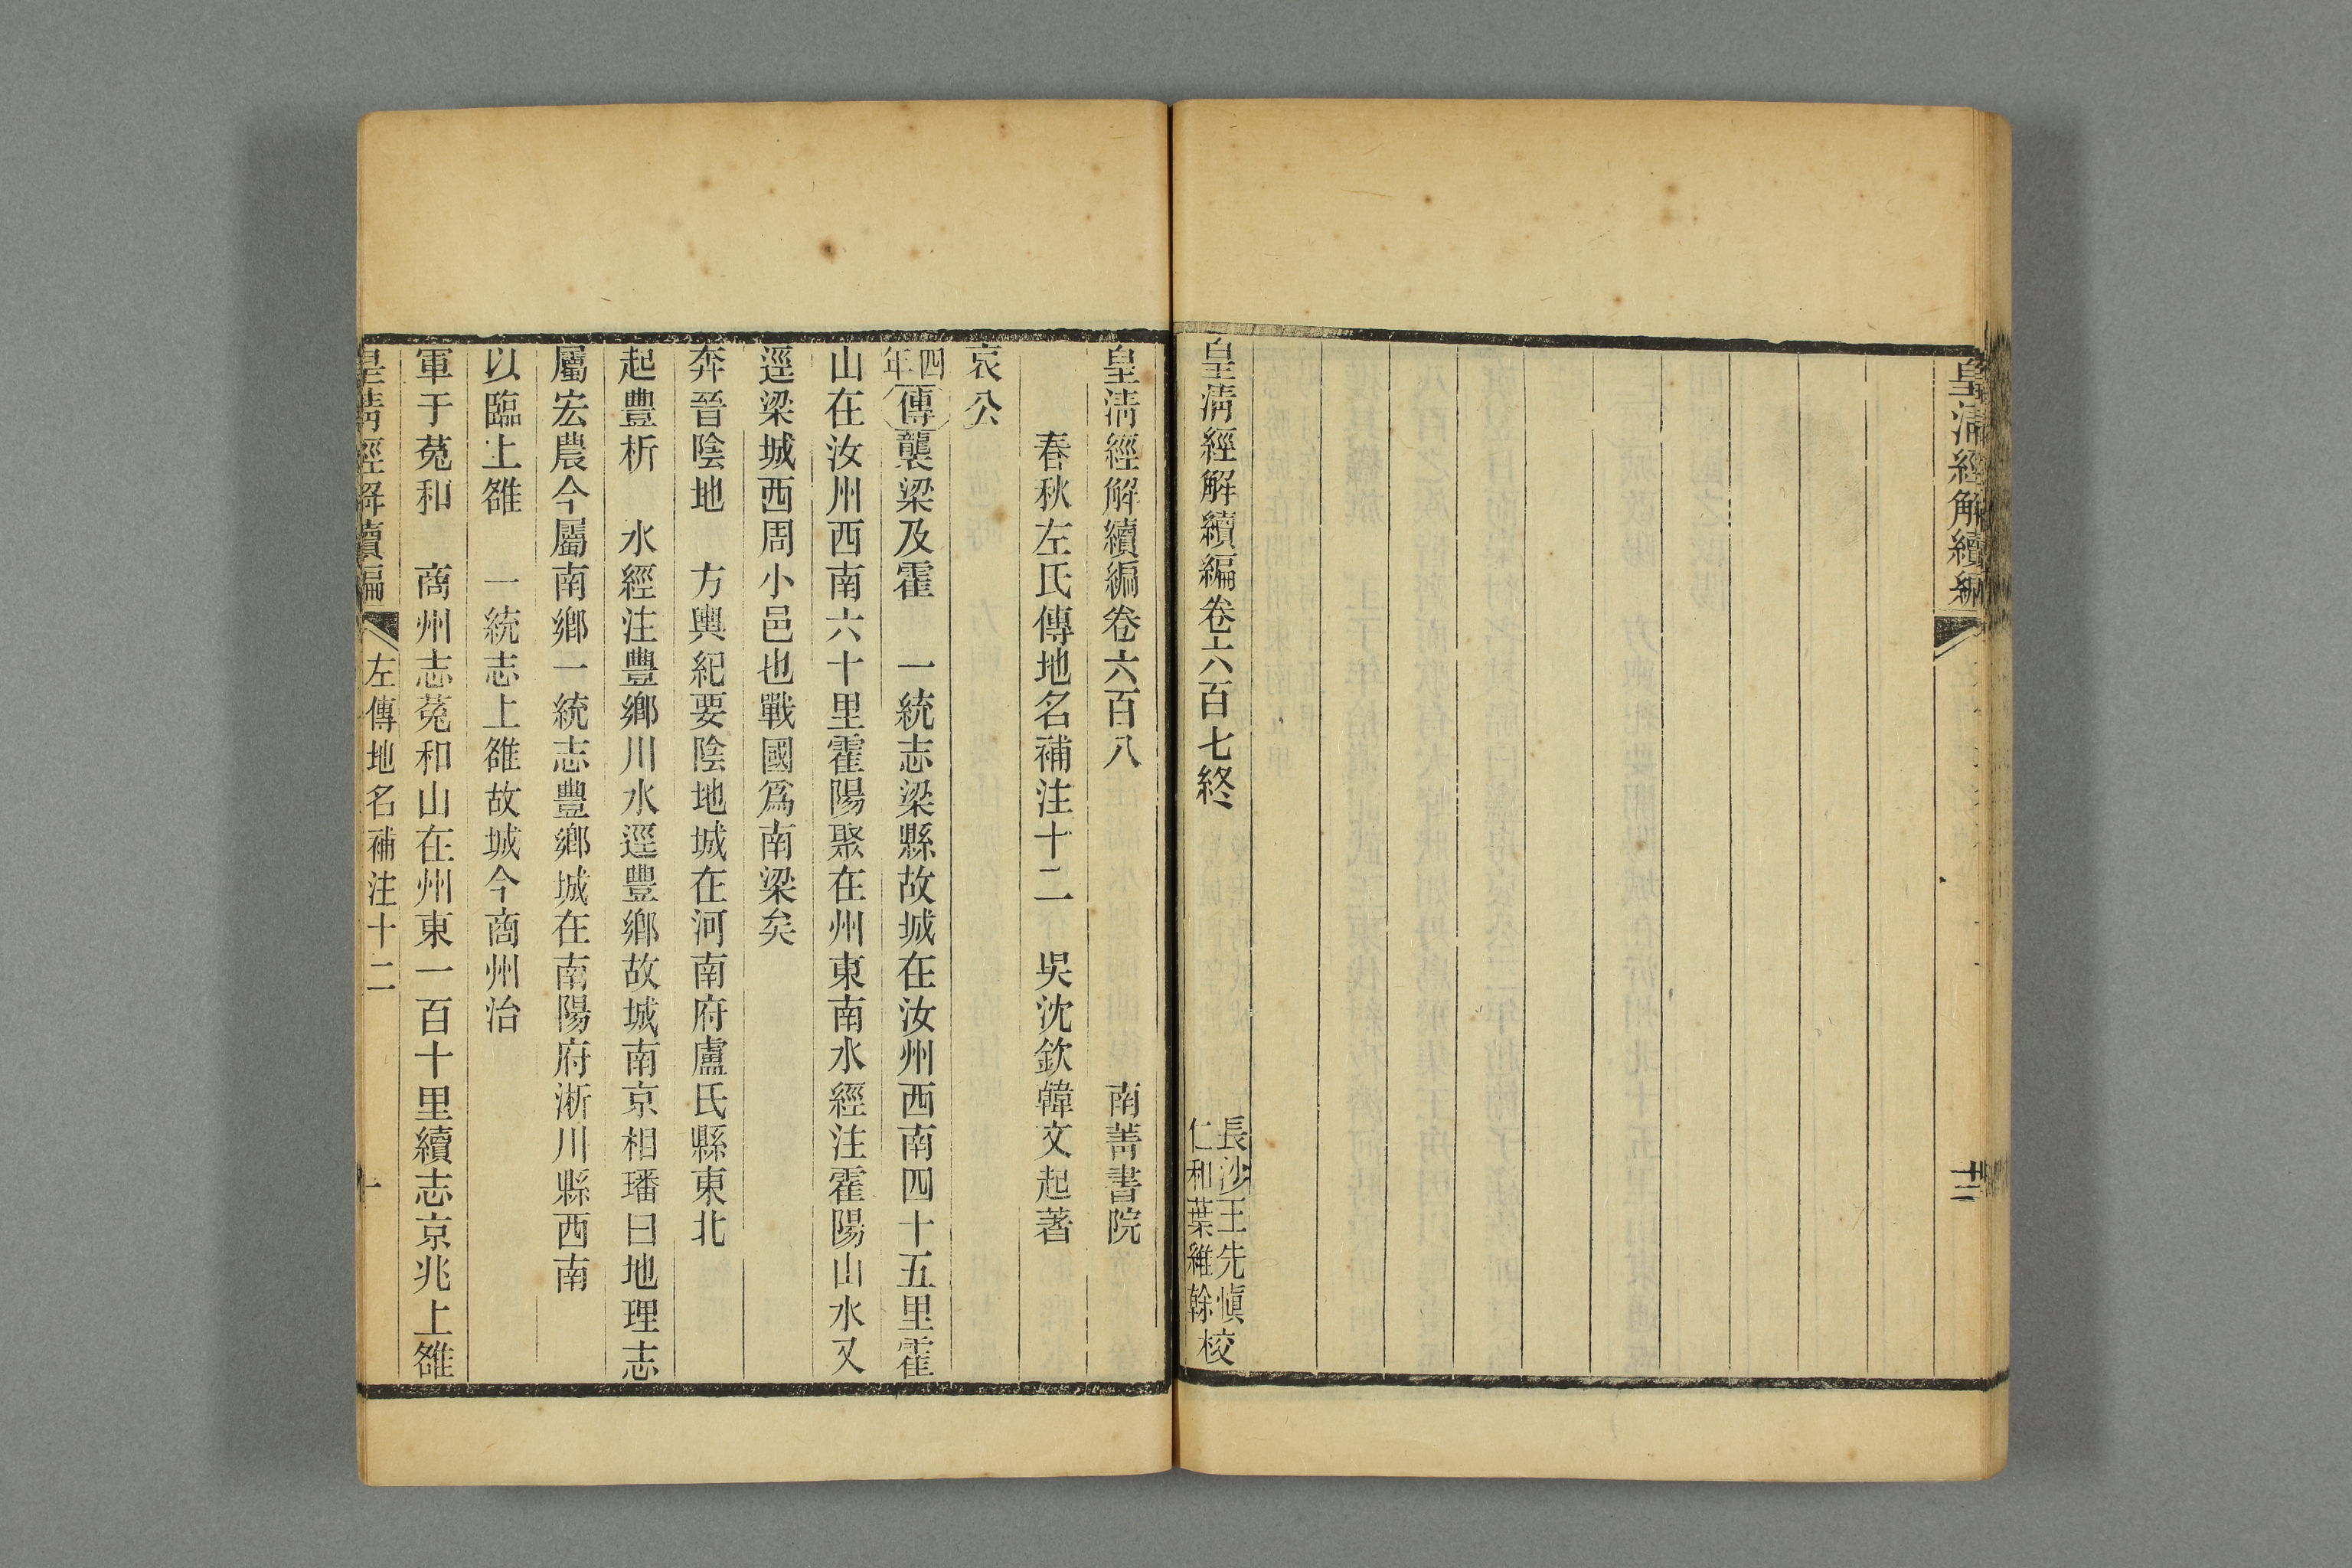 皇清經解續編
十三
皇清經解續編卷六百七終
長沙王先慎
仁和葉維幹校
皇清經解續編卷六百八 南菁書院
春秋左氏傳地名補注十二 吳沈欽韓文起著
哀公
四年傳襲梁及霍 一統志梁縣故城在汝州西南四十五里霍
山在汝州西南六十里霍陽聚在州東南水經注霍陽山水又
逕梁城西周小邑也戰國爲南梁矣
奔晉陰地 方輿紀要陰地城在河南府盧氏縣東北
起豐析 水經注豐鄉川水逕豐鄉故城南京相璠曰地理志
屬宏農今屬南鄉一統志豐鄉城在南陽府淅川縣西南
以臨上雒 一統志上雒故城今商州治
軍于菟和 商州志菟和山在州東一百十里續志京兆上雒
皇清經解續編 左傳地名補注十二 一